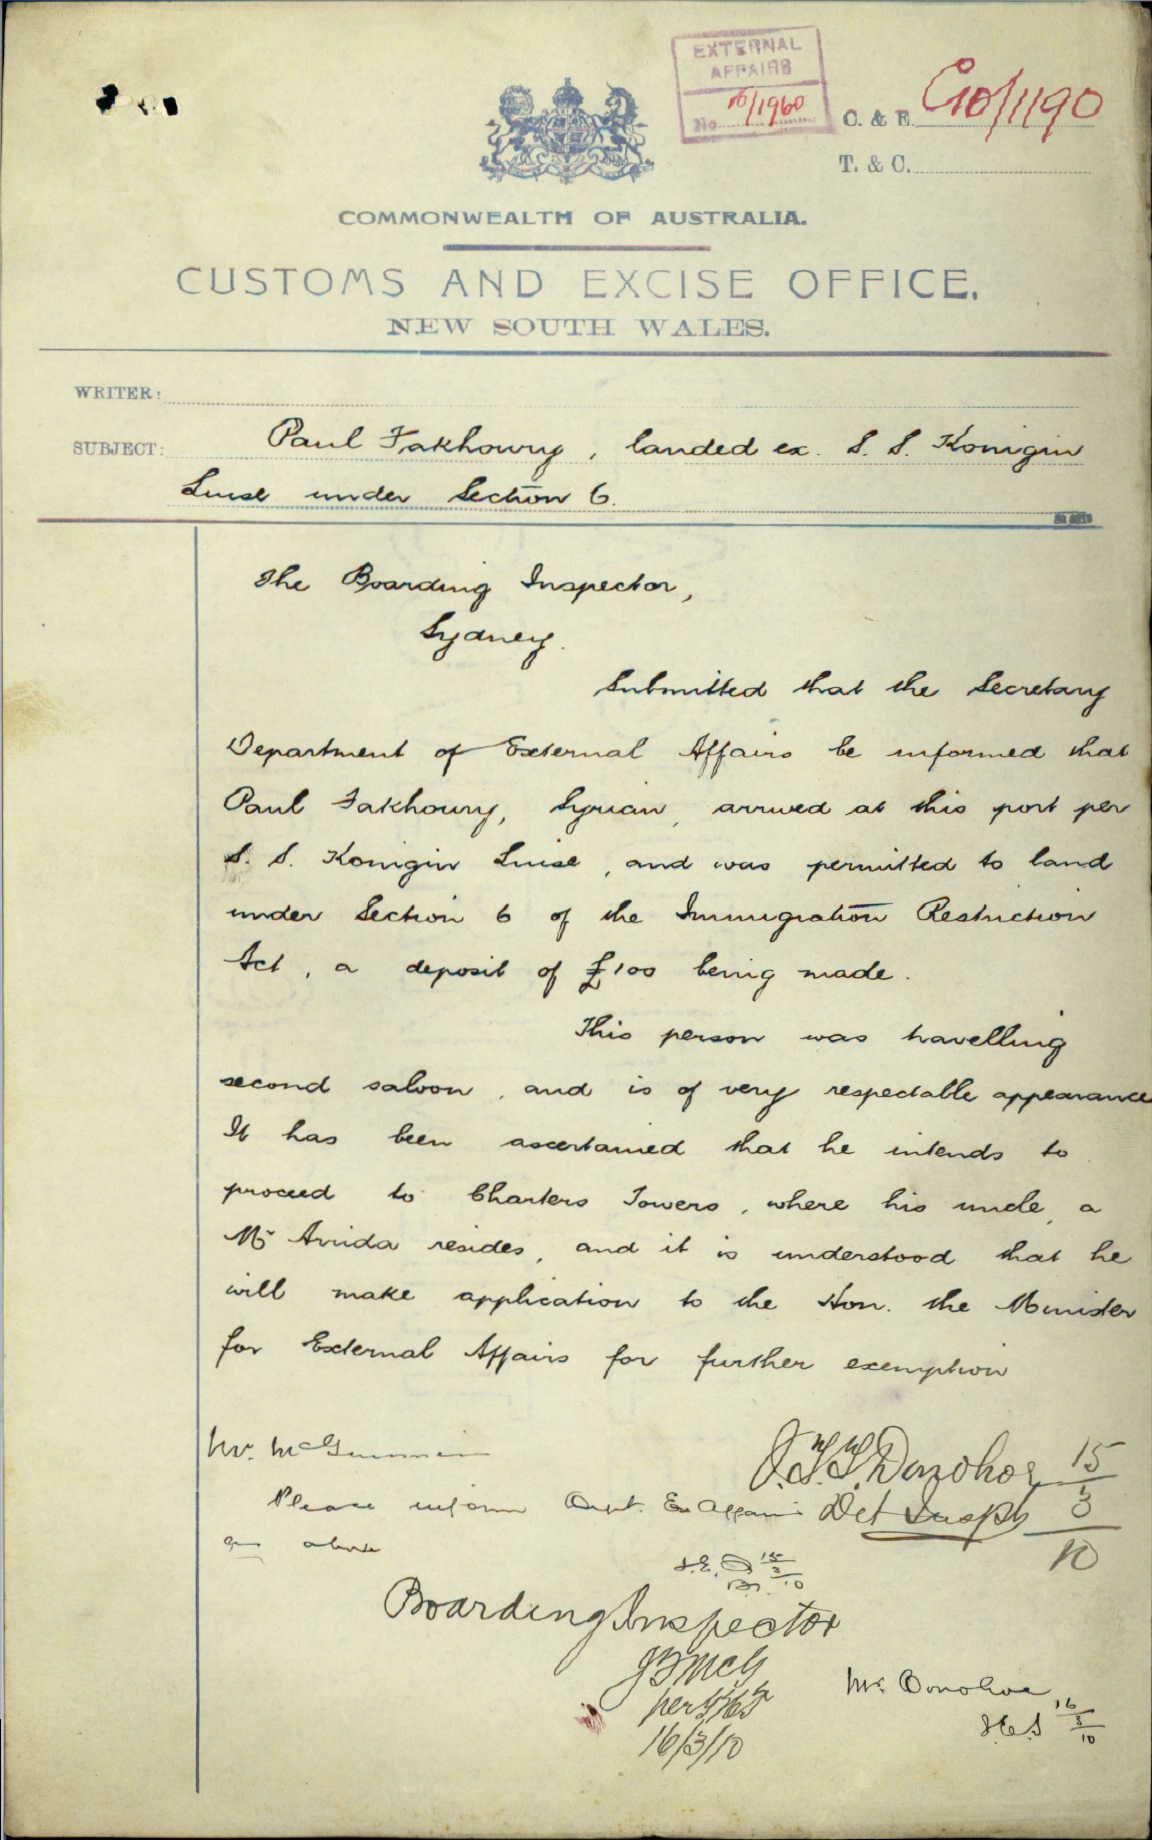 EXTERNAL
AFFAIRS
No 10/1960
C. & E. C10/1190
T. & C.
COMMONWEALTH OF AUSTRALIA.
CUSTOMS AND EXCISE OFFICE.
NEW SOUTH WALES.
WRITER:
SUBJECT: Paul Fakhoury, landed ex. S. S. Konigin
Luise under Section 6.
The Boarding Inspector,
Sydney.
Submitted that the Secretary
Department of External Affairs be informed that
Paul Fakhoury, Syrian, arrived at this port per
S. S. Konigin Luise, and was permitted to land
under Section 6 of the Immigration Restriction
Act, a deposit of £100 being made.
This person was travelling
second saloon, and is of very respectable appearance
It has been ascertained that he intends to
proceed to Charters Towers, where his uncle, a
Mr Arrida resides, and it is understood that he
will make application to the Hon. the Minister
for External Affairs for further exemption
Mr. McGunnin
J.T.T. Donohoe 15/3/10
Please inform Dept. Ex Affairs
Det Inspr
as above
15/3/10
Boarding Inspector
JTMcG
per
16/3/10
Mr. Donohoe
16/3/10